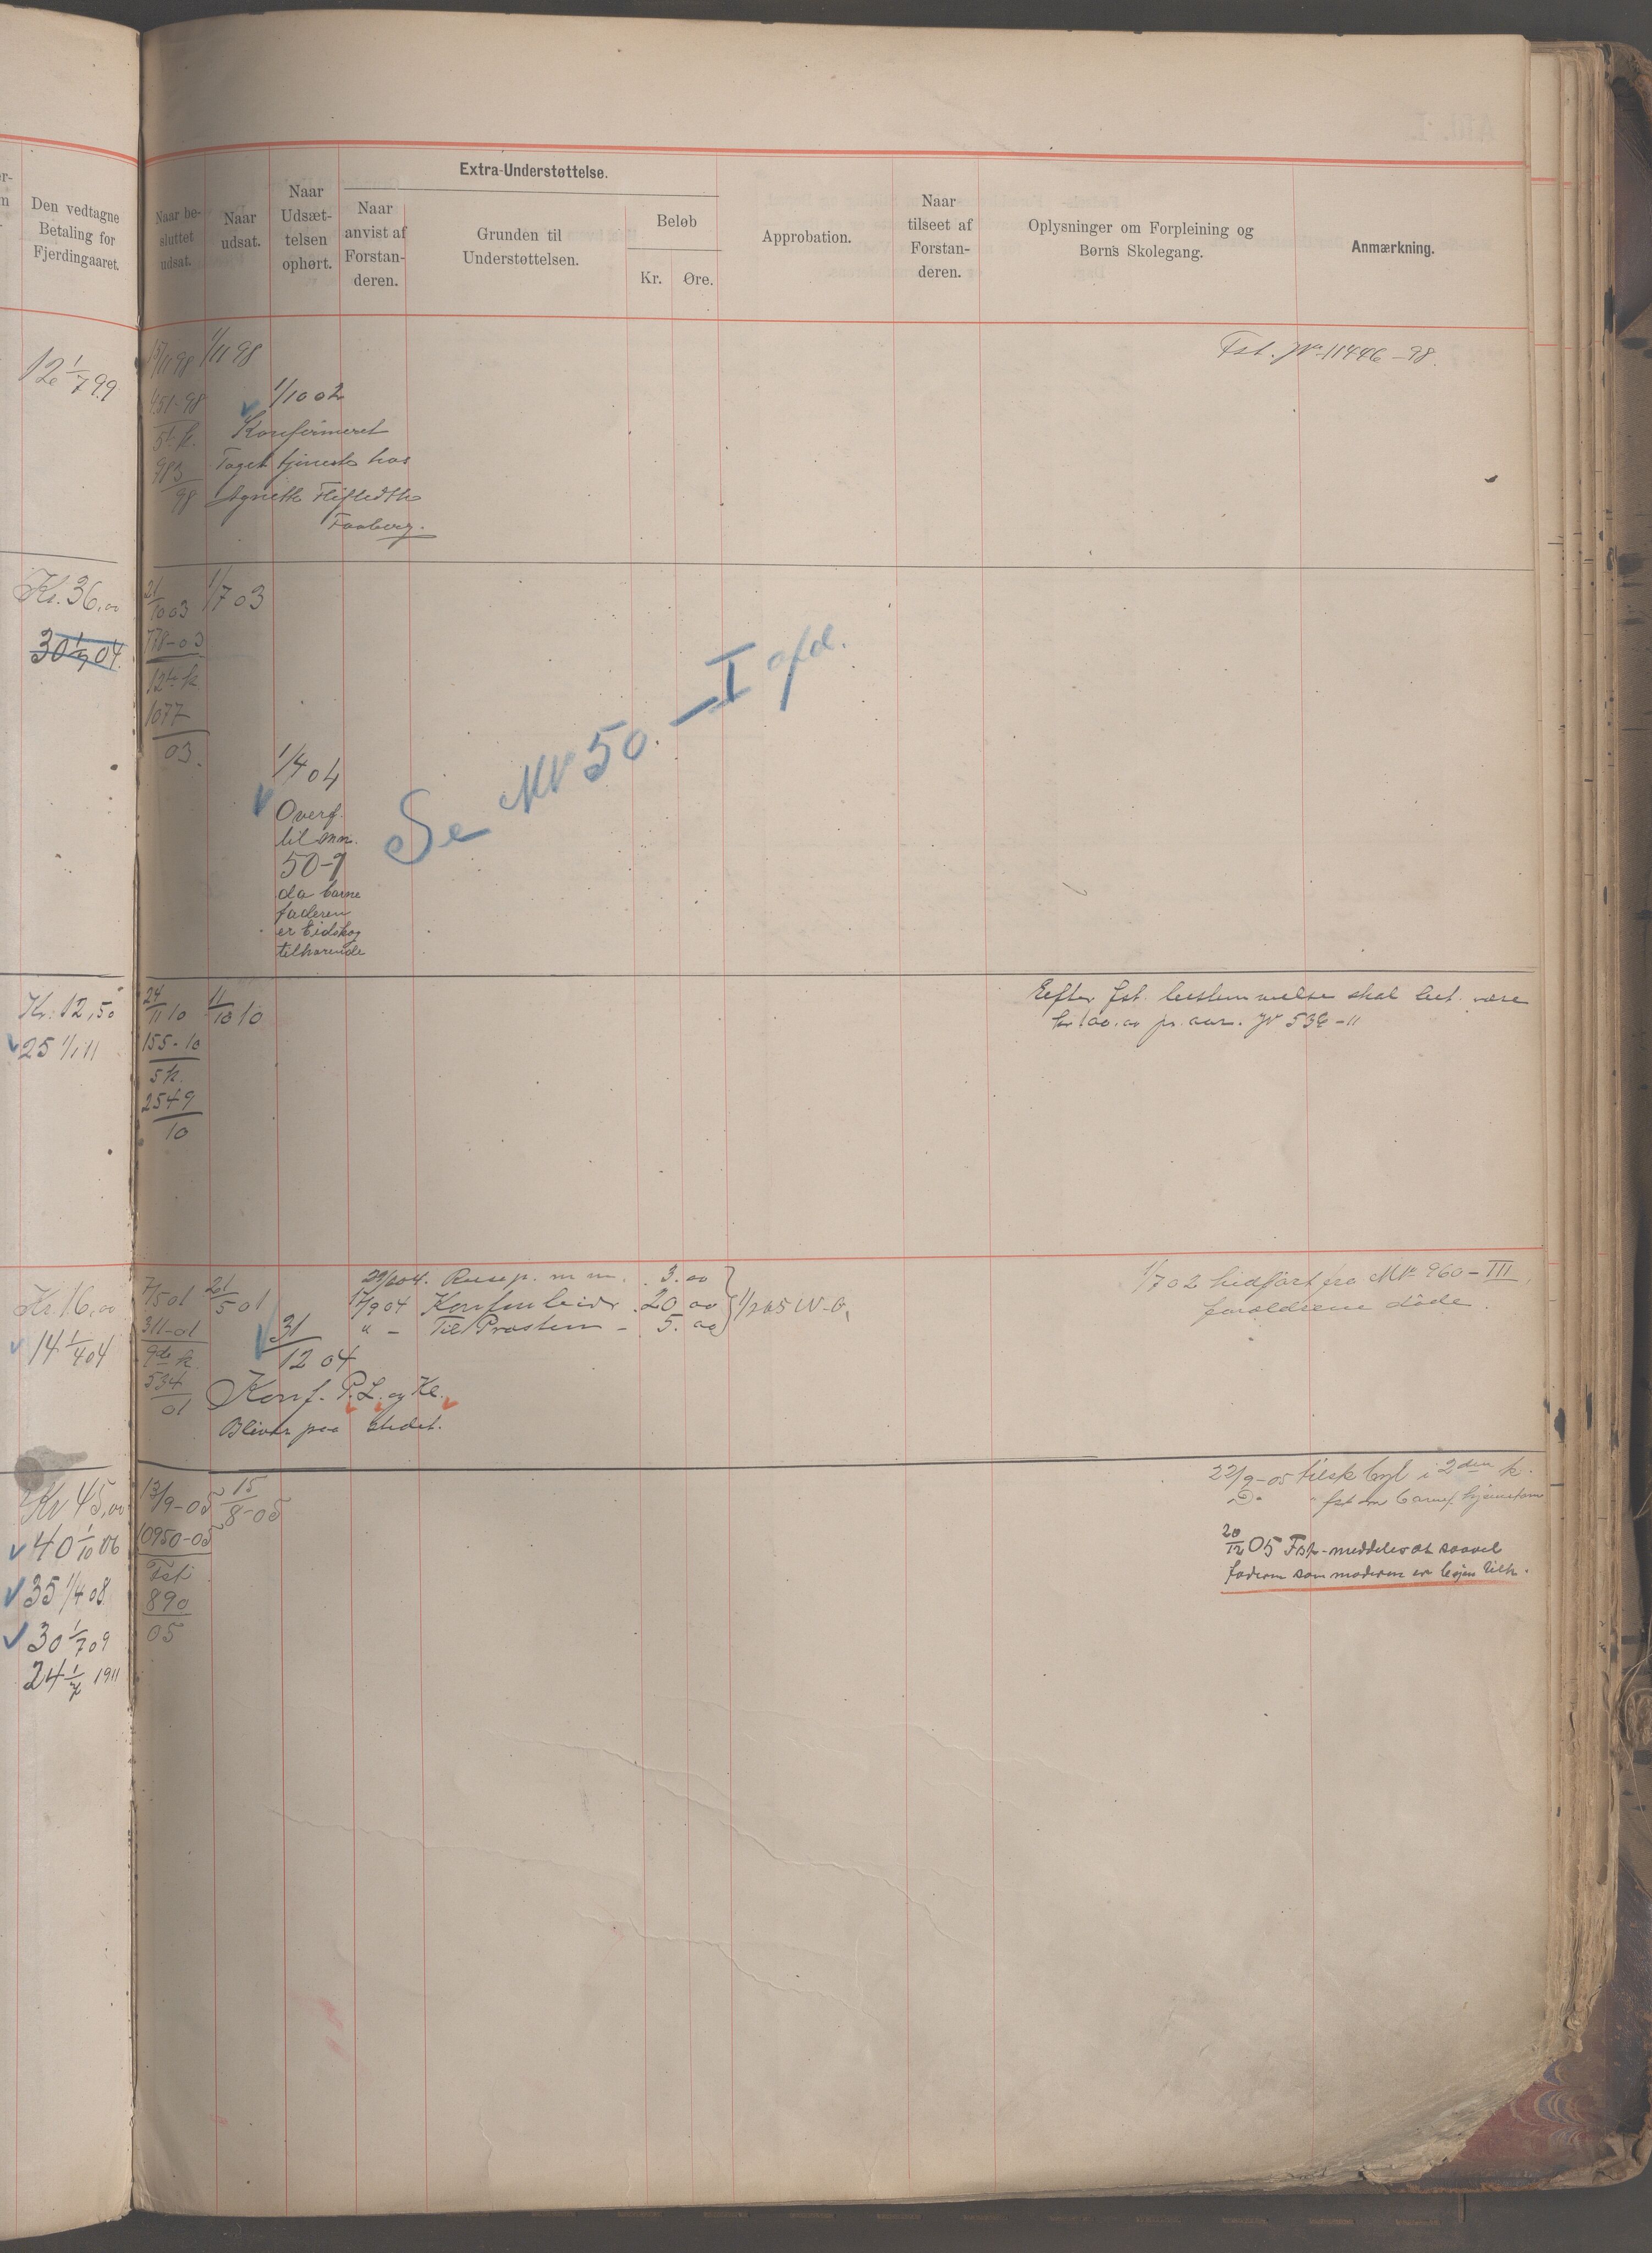 Den vedtagne
Betaling for
Fjerdingaaret.
Naar be-
sluttet
udsat.
Naar
udsat.
Naar
Udsæt-
telsen
ophørt.
Extra-Understøttelse.
Naar
anvist af
Forstan-
deren.
Grunden til
Understøttelsen.
Beløb
Kr.
Øre.
Approbation.
Naar
tilseet af
Forstan-
deren.
Oplysninger om Forpleining og
Børns Skolegang.
Anmærkning.
12 1/7 99
15/11 98
1/11 98
451-98
5t. k.
983
98
1/10 02
Konfirmeret
Taget tjeneste hos
Agnethe
Faaberg.
Fst. Jr 11446-98.
Kr. 36,00
30 1/7 04
21/10 03
1/7 03
778-03
12te k
1077
03.
1/4 04
Overf.
til
50-I
da barne
faderen
er Eidskog
tilhørende
Se Nr 50.-I afd.
Kr. 12,50
25 1/1 11
24/11 10
11/10 10
155-10
5 k.
2549
10
Efter fst. bestemmelse skal bet. være
kr 100.00 pr. aar. Jr 532-11
Kr. 16,00
14 1/4 04
7/5 01
21/5 01
311-01
9de k.
534
01
31/12 04
Konf. P. L. og Kl.
Bliver paa stedet.
m m. 3.00
17/9 04 20 00
" - Til Præsten - 5. 00
1/7 02 hidført fra Nr 960-III
forældrene døde.
Kr 45,00
40 1/10 06
35 1/4 08
30 1/7 09
24 1911
13/9-05
15/8-05
10950-05
Fst.
890
05
22/9-05 tilsk i 2den k.
Do fst om barnets hjemstavn
20/12 05 Fst. meddeles at saavel
faderen som moderen er